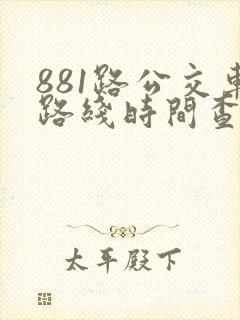 881路公交車
路綫時間查
太平殿下